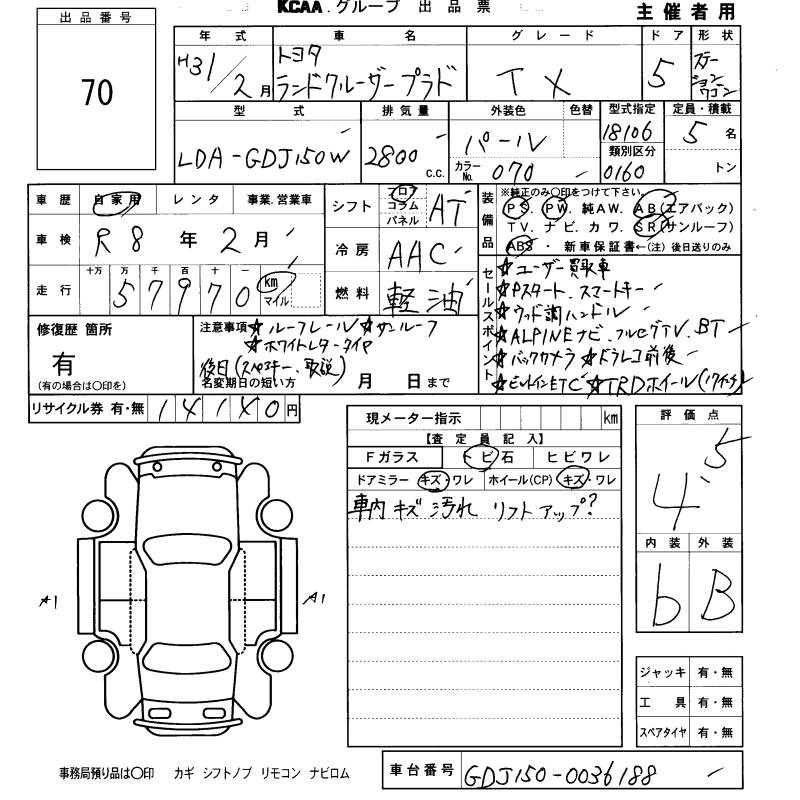 KCAA.グループ 出品票
主催者用
出品番号
70
年式 車名 グレード ドア 形状
H31/2月 トヨタ ランドクルーザープラド TX 5 ステーションワゴン
型式 排気量 外装色 色替 型式指定 定員・積載
LDA-GDJ150W 2800 c.c. パール 18106 5名
カラーNo. 070 類別区分 0160 トン
車歴 自家用 レンタ 事業.営業車
車検 R8年2月
走行 十万 万 千 百 十 一
57970 km マイル
シフト フロ コラム パネル AT
冷房 AAC
燃料 軽油
装備品 ※純正のみ○印をつけて下さい。
PS. PW. 純AW. AB(エアバック)
TV. ナビ. カワ. SR(サンルーフ)
ABS・新車保証書←(注)後日送りのみ
セールスポイント
★ユーザー買取車
★Pスタート.スマートキー
★ウッド調ハンドル
★ALPINEナビ.フルセグTV.BT
★バックカメラ★ドラレコ前後
★ビルトインETC★TRDホイール(17インチ)
修復歴 箇所
有
(有の場合は○印を)
注意事項 ★ルーフレール★サンルーフ
★ホワイトレタータイヤ
後日(スペアキー、取説)
名変期日の短い方 月 日まで
リサイクル券 有・無 14140円
現メーター指示 km
【査定員記入】
Fガラス トビ石 ヒビワレ
ドアミラー キズ・ワレ ホイール(CP) キズ・ワレ
車内キズ汚れ リフトアップ?
評価点
4.5
内装 外装
b B
A1 A1
ジャッキ 有・無
工具 有・無
スペアタイヤ 有・無
事務局預り品は○印 カギ シフトノブ リモコン ナビロム
車台番号 GDJ150-0036188